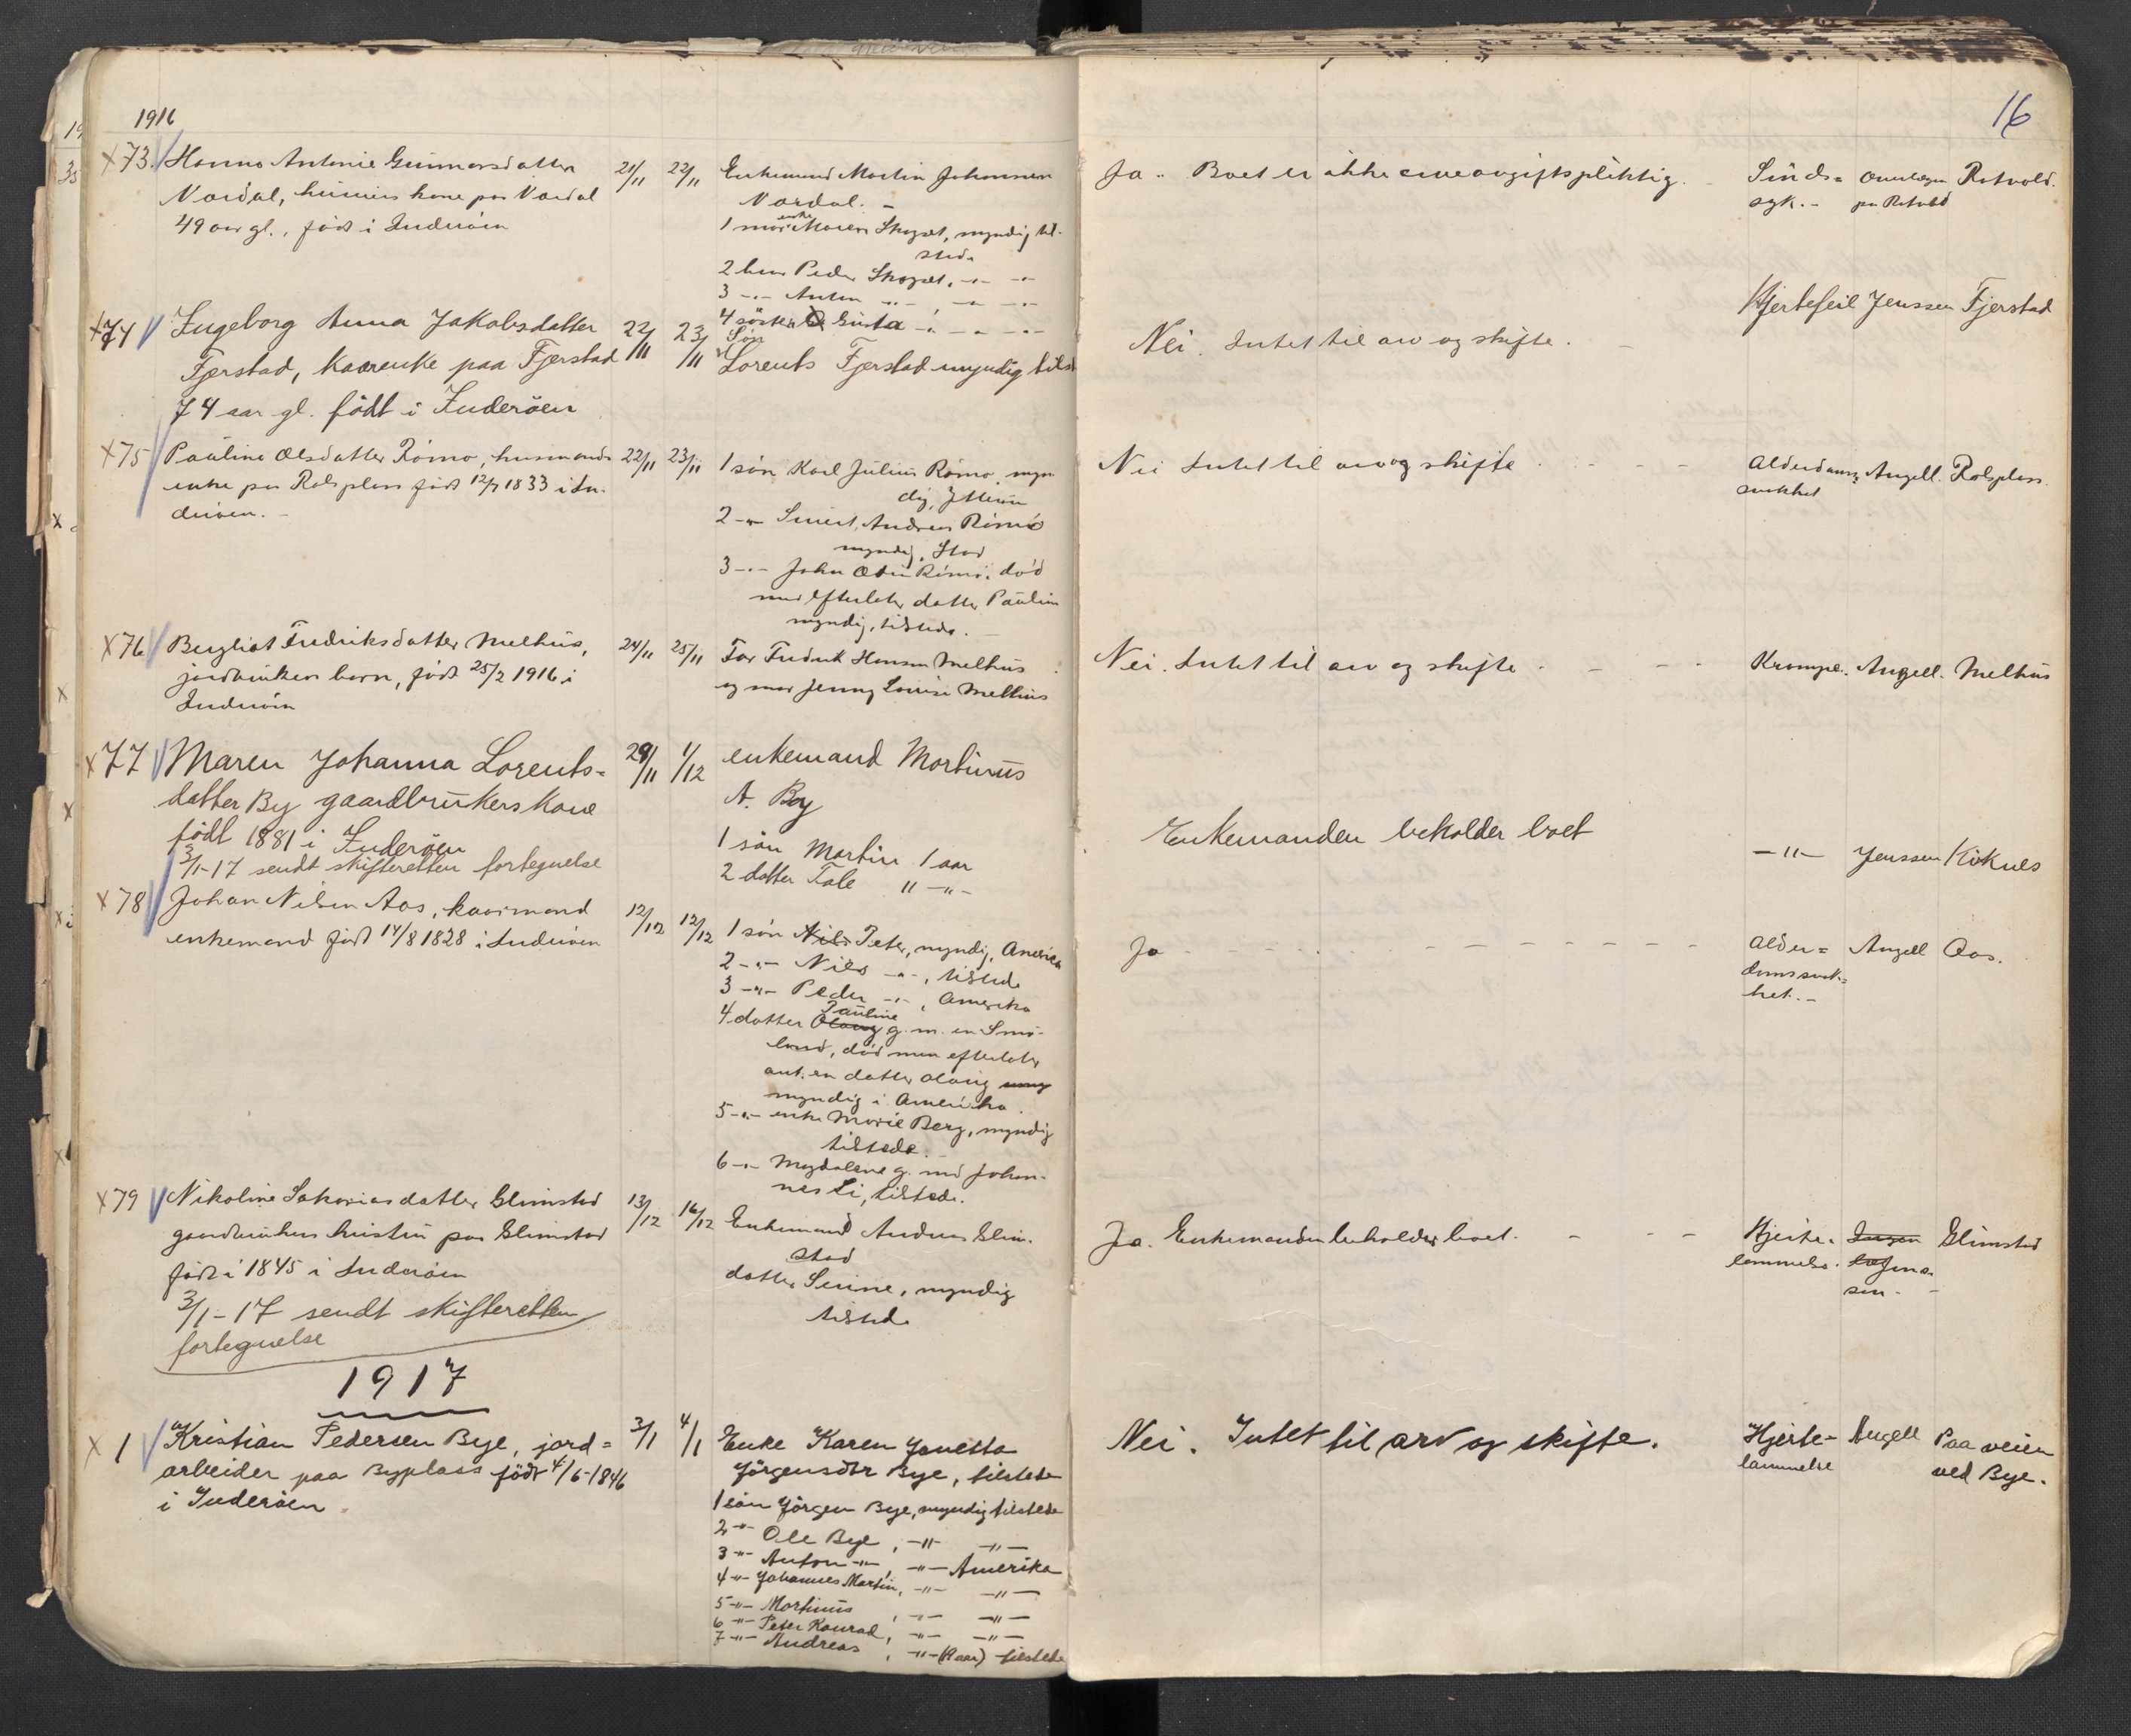 1916
16
x 73. Hanna Antonie Gunnarsdatter
Nordal, husmors kone paa Nordal
49 aar gl., født i Inderöen
21/11 22/11
Enkemand Martin Johannsen
Nordal. -
1 mor enke Maren Skopet, myndig til-
stede
2 bror Peder Skopet, -"- -"-
3 -"- Anton -"- -"- -"-
4 söster Gusta -"- -"- -"-
Ja. Boet er ikke arveavgiftspliktig.
Sinds=
syk. -
Overlægen
paa Rotvold
Rotvold.
x 74 Ingeborg Anna Jakobsdatter
Fjerstad, kaarenke paa Fjerstad
74 aar gl. födt i Inderöen
22/11 23/11
Sön
Lorents Fjerstad myndig tilst
Nei. Intet til arv og skifte.
Hjertefeil Jenssen Fjerstad
x 75 Pauline Olsdatter Römo, husmands
enke paa Rolsplass født 12/7 1833 i In-
deröen. -
22/11 23/11
1 sön Karl Julius Römo, myn
dig, Ytterön
2 -"- Andreas Römo
myndig, Stod
3 -"- John Odin Römo, död
men efterlater datter Paulin
myndig, tilstede. -
Nei Intet til arv og skifte
Alderdoms=
svakhet
Angell. Rolsplass.
x 76 Bergliot Fredriksdatter Melhus,
jordbrukers barn, född 25/2 1916 i
Inderöen
24/11 25/11
Far Fredrik Hansen Melhus
og mor Jenny Lovise Melhus
Nei. Intet til arv og skifte
Krampe. Angell. Melhus
x 77 Maren Johanna Lorents=
datter By gaardbrukers kone
födt 1881 i Inderöen
3/1-17 sendt skifteretten fortegnelse
29/11 1/12
enkemand Martinus
A. By
1 sön Martin 1 aar
2 datter Tale " -"-
Enkemanden beholder boet
-"- Jenssen Koknes
x 78 Johan Nilsen Aas, kaarmand
enkemand född 14/8 1828 i Inderöen
12/12 12/12
1 sön Nils Peter, myndig, Amerika
2 -"- Nils -"-, tilstede
3 -"- Peder -"-, Amerika
4 datter Pauline Olaug g. m. en Smö-
land, död men efterlater
ant. en datter Olaug
myndig i Amerika.
5 -"- enke Marie Berg, myndig
tilstede.
6 -"- Magdalene g. med Johan-
nes Li, tilstede.
Ja
Alder=
domssvak=
het. -
Angell Aas.
x 79 Nikoline Sakariasdatter Glimstad
gaardbrukers hustru paa Glimstad
född i 1845 i Inderöen
3/1-17 sendt skifteretten
fortegnelse
13/12 16/12
Enkemand Andreas Glim-
stad
datter Serine, myndig
tilstede
Ja. Enkemanden beholder boet.
Hjerte-
lammelse.
Jensen
Glimstad
1917
x 1 Kristian Pedersen Bye, jord=
arbeider paa Byplass födt 4/6-1846
i Inderöen.
3/1 4/1
Enke Karen Janetta
Jörgensdtr Bye, tilstede
1 sön Jörgen Bye, myndig tilstede
2 -"- Ole Bye, -"- -"-
3 -"- Anton -"-, -"- Amerika
4 -"- Johannes Martin, -"- -"-
5 -"- Martinus, -"- -"-
6 -"- Peter Konrad, -"- -"-
7 -"- Andreas, -"- (Kaar) tilstede
Nei. Intet til arv og skifte.
Hjerte-
lammelse
Angell
Paa veien
ved Bye.